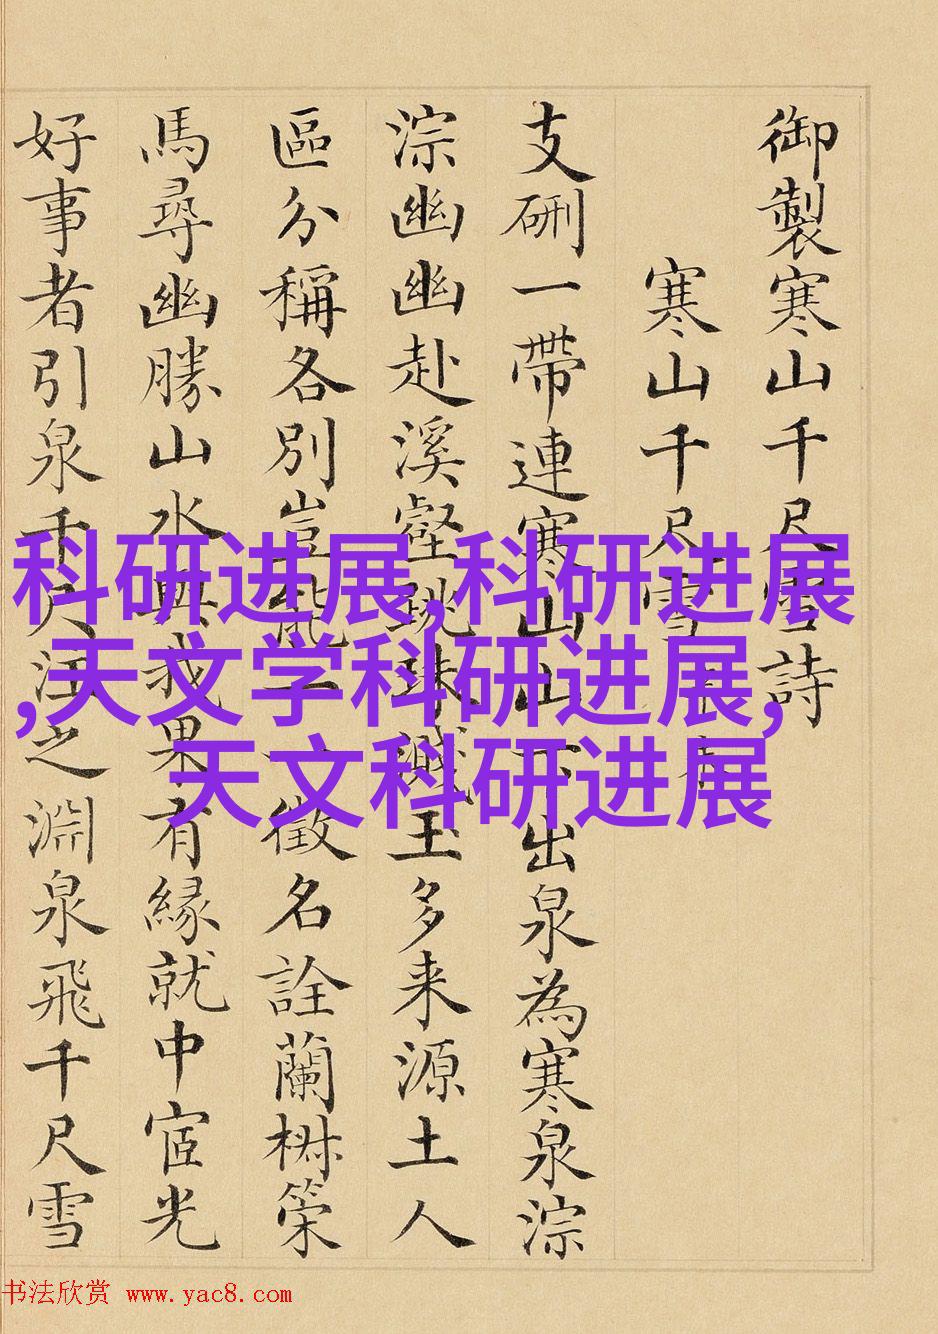 御製寒山千尺雪詩
寒山千尺雪
支硎一帶連寒山山下出泉為寒泉淙
淙幽幽赴溪壑跳珠濺玉多来源土人
區分稱各別豈能一一徵名詮蘭椒策
馬尋幽勝山水與我果有緣就中宧光
好事者引泉千尺注之淵泉飛千尺雪
科研进展,科研进展
,天文学科研进展,
天文科研进展
书法欣赏 www.yac8.com